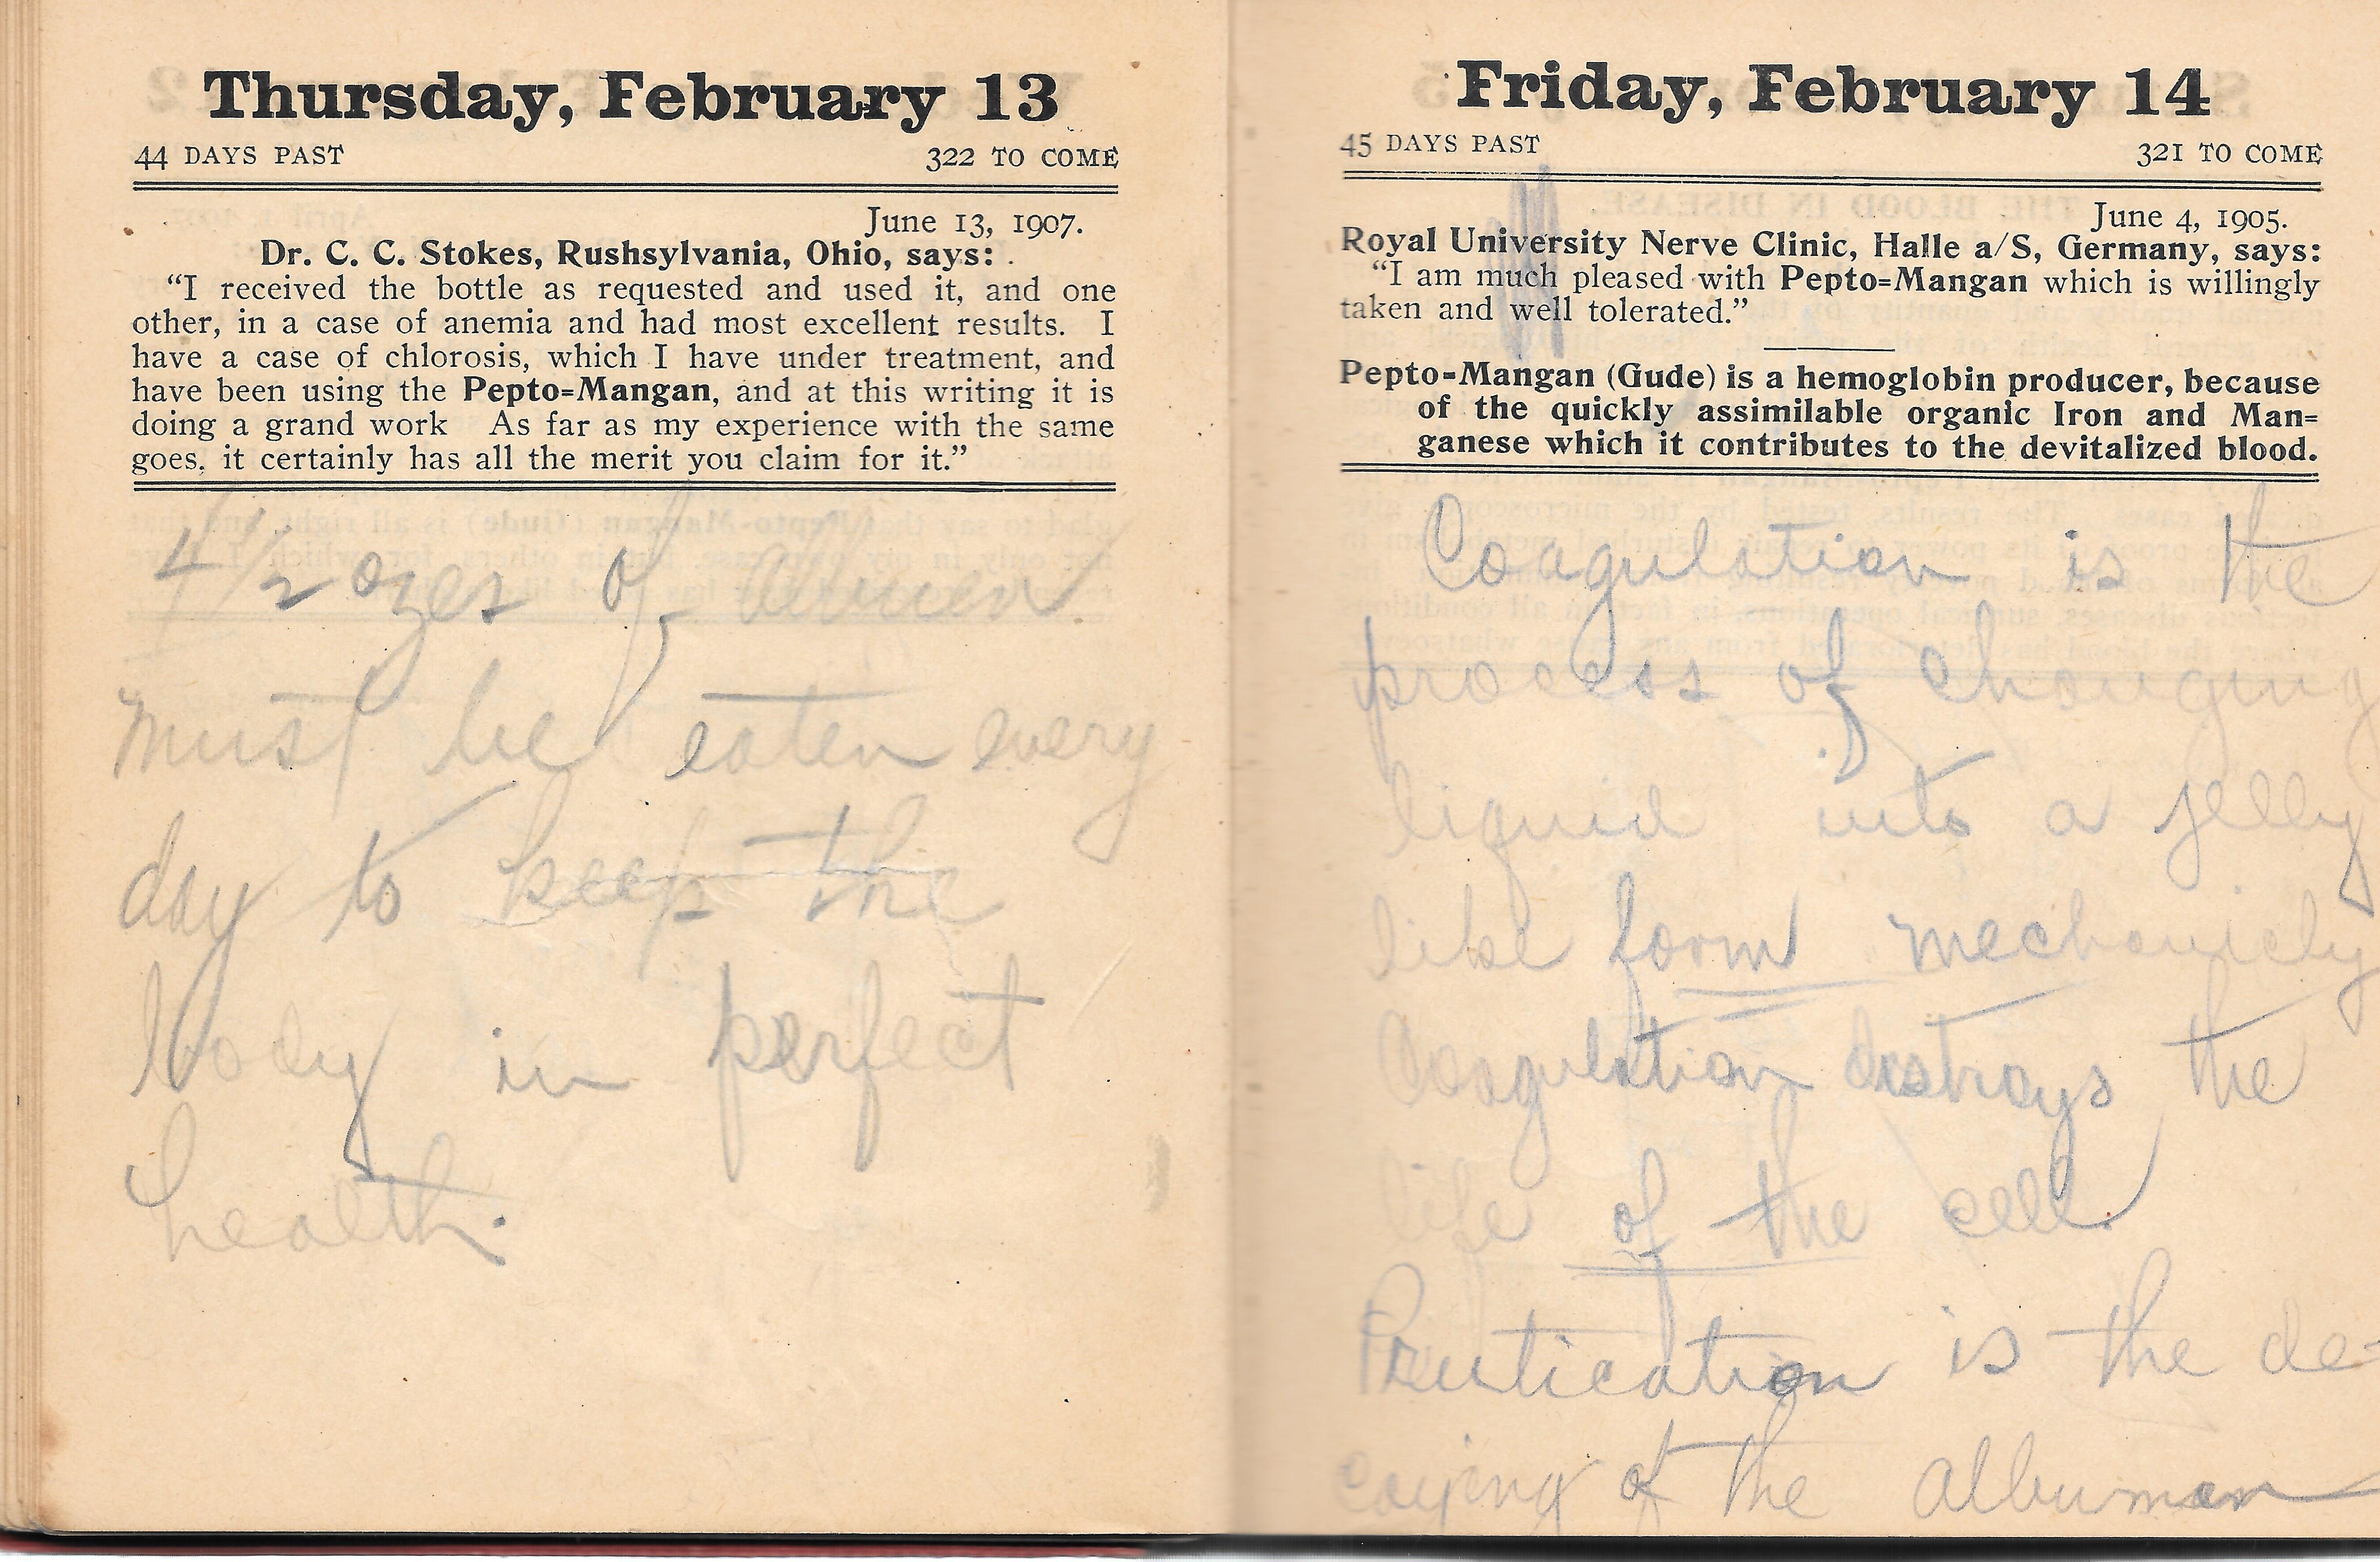 Thursday, February 13
44 DAYS PAST 322 TO COME
June 13, 1907.
Dr. C. C. Stokes, Rushsylvania, Ohio, says:
“I received the bottle as requested and used it, and one
other, in a case of anemia and had most excellent results. I
have a case of chlorosis, which I have under treatment, and
have been using the Pepto=Mangan, and at this writing it is
doing a grand work As far as my experience with the same
goes, it certainly has all the merit you claim for it.”
4 1/2 ozes of
must be eaten every
day to keep the
body in perfect
health.
Friday, February 14
45 DAYS PAST 321 TO COME
June 4, 1905.
Royal University Nerve Clinic, Halle a/S, Germany, says:
“I am much pleased with Pepto=Mangan which is willingly
taken and well tolerated.”
Pepto=Mangan (Gude) is a hemoglobin producer, because
of the quickly assimilable organic Iron and Man=
ganese which it contributes to the devitalized blood.
Coagulation is the
process of changing
liquid into a jelly
like form mechanicly
Coagulation distroys the
life of the cell.
is the de-
caying of the albumen